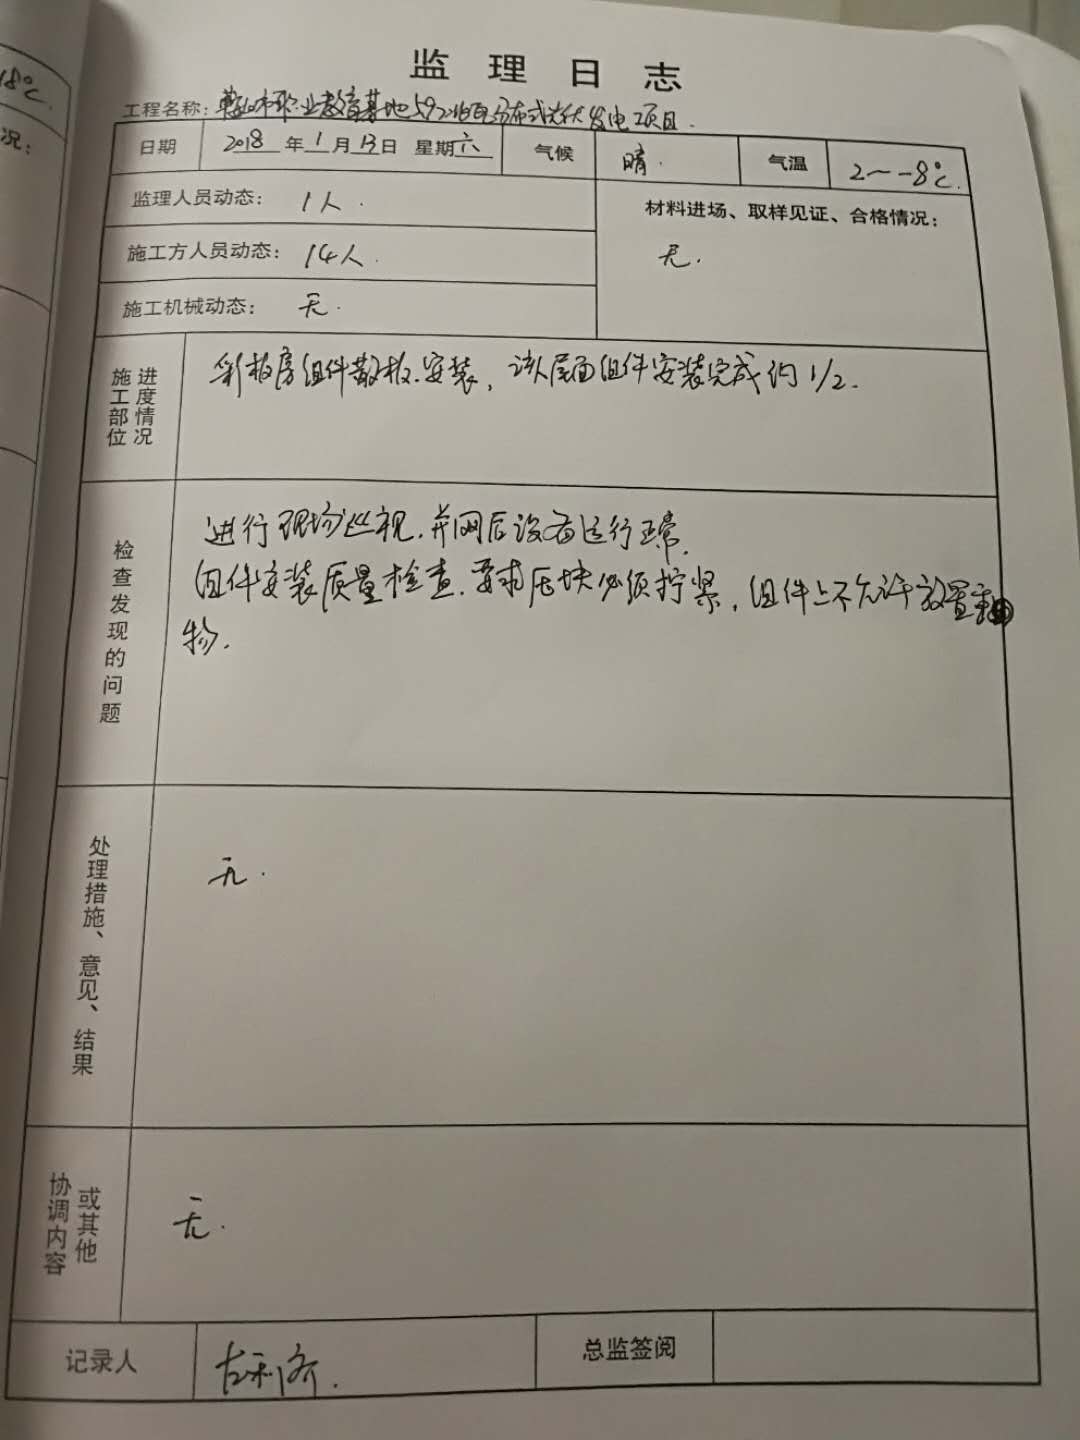 18℃.
况：
监理日志
工程名称：鞍山市职业教育基地592 分布式光伏发电项目.
日期 2018年1月13日 星期六 气候 晴. 气温 2~-8℃.
监理人员动态： 1人.
材料进场、取样见证、合格情况：
无.
施工方人员动态： 14人.
施工机械动态： 无.
施工部位 进度情况
彩板房组件散板安装，该屋面组件安装完成约1/2.
检查发现的问题
进行现场巡视.并网后设备运行正常.
组件安装质量检查.要求压块必须拧紧，组件上不允许放置重
物.
处理措施、意见、结果
无.
协调内容 或其他
无.
记录人 总监签阅